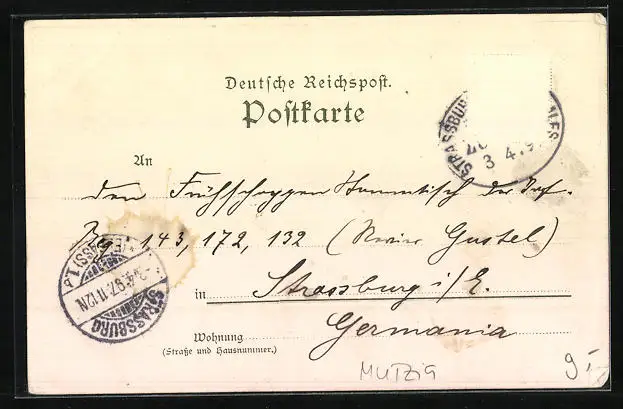 Deutsche Reichspost.
Postkarte
STRASSBURG
3 4.9
An
den Frühschoppen Stammtisch der Inf.
Rg. 143, 172, 132 (Revier Gustel)
in Strassburg i/E.
Germania
Wohnung
(Straße und Hausnummer.)
STRASSBURG
4.97.11-12N
MUTZIG
9.-